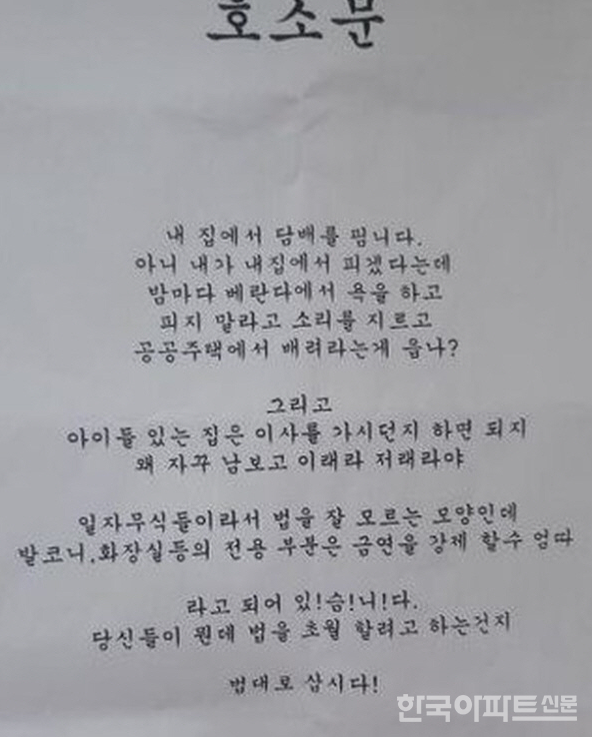 호소문
내 집에서 담배를 핌니다.
아니 내가 내집에서 피겠다는데
밤마다 베란다에서 욕을 하고
피지 말라고 소리를 지르고
공공주택에서 배려라는게 읍나?
그리고
아이들 있는 집은 이사를 가시던지 하면 되지
왜 자꾸 남보고 이래라 저래라야
일자무식들이라서 법을 잘 모르는 모양인데
발코니,화장실등의 전용 부분은 금연을 강제 할수 업따
라고 되어 있!습!니!다.
당신들이 뭔데 법을 초월 할려고 하는건지
법대로 삽시다!
한국아파트신문